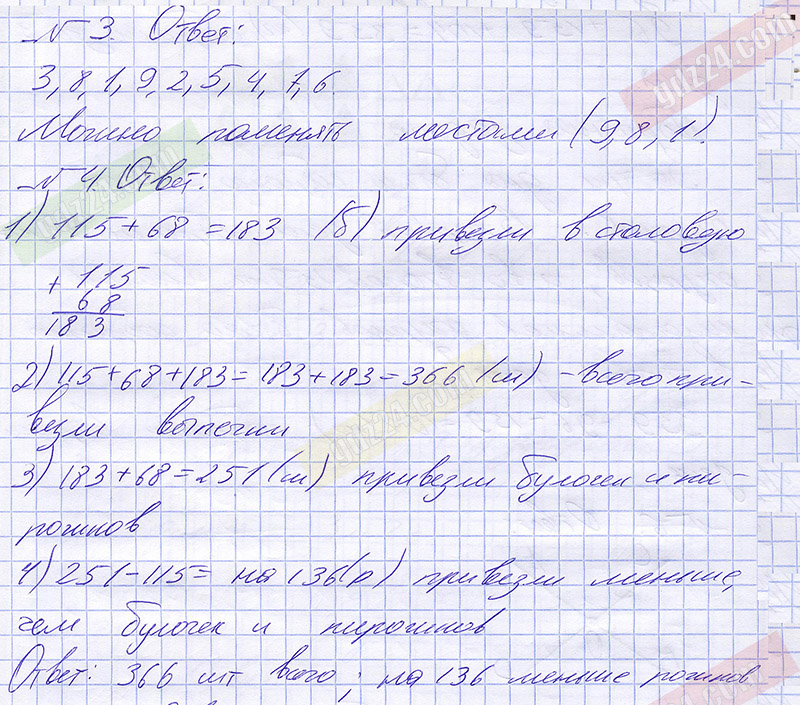 № 3. Ответ:
3, 8, 1, 9, 2, 5, 4, 7, 6.
Можно поменять местами (9, 8, 1).
№ 4. Ответ:
1) 115 + 68 = 183 (б) привезли в столовую
+ 115
68
183
2) 115 + 68 + 183 = 183 + 183 = 366 (ш) – всего при-
везли выпечки
3) 183 + 68 = 251 (ш) привезли булочек и пи-
рожков
4) 251 – 115 = на 136 (р) привезли меньше,
чем булочек и пирожков
Ответ: 366 шт всего; на 136 меньше рожков
gdz24.com
gdz24.com
gdz24.com